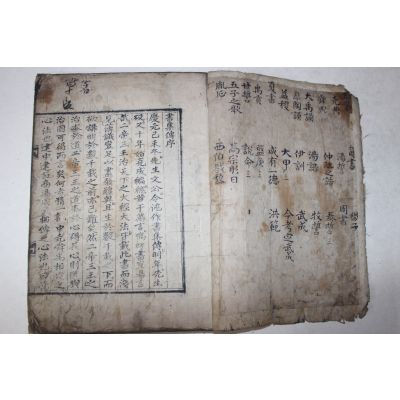 周書
湯誓
堯典 仲虺之誥 泰誓三
舜典 湯誥 牧誓
大禹謨 伊訓 武成
皐陶謨 大甲三 今考定武成
益稷 咸有一德 洪範
夏書
禹貢 盤庚三
甘誓 說命三
五子之歌 高宗肜日
胤征 西伯戡黎
書集傳序
慶元己未冬先生文公令沈作書集傳明年先生
歿又十年始克成編總若干萬言嗚呼書豈易言
哉二帝三王治天下之大經大法皆載此書而淺
見薄識豈足以盡發蘊奧且生於數千載之下而
欲講明於數千載之前亦已難矣然二帝三王之
治本於道二帝三王之道本於心得其心則道與
治固可得而言矣何者精一執中堯舜禹相授之
心法也建中建極商湯周武相傳之心法也